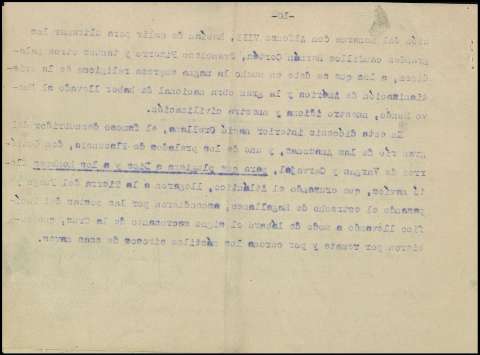 -10-
ción del Monarca don Alfonso VIII, habían de salir para los
grandes caudillos Hernán Cortés, Francisco Pizarro y tantos otros
a los que se debe en mucho la magna empresa religiosa de la cris-
tianización de América y la gran obra nacional de haber llevado al Nue-
vo Mundo, nuestro idioma y nuestra civilización.
En esta diócesis interior nació Orellana, el famoso descubridor del
gran río de las Amazonas, y uno de los prelados de Plasencia, don Gutié-
rrez de Vargas y Carvajal, para que pluguiera a Dios y a los hombres fle-
tó navíos, que cruzando el Atlántico, llegaron a la Tierra del Fuego,
pasando el estrecho de Magallanes, ascendieron por las costas del Pací-
fico llevando a modo de lábaro el signo sacrosanto de la Cruz,
bieron por remate y por corona los mástiles airosos de esas naves.